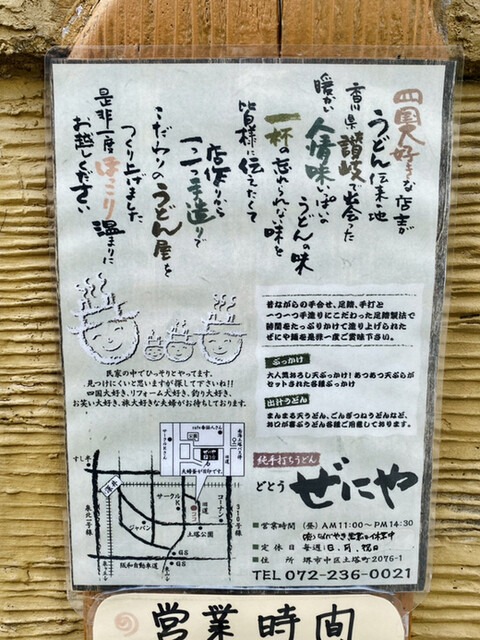 四国大好きな店主が
うどん伝来の地
香川県讃岐で出会った
暖かい人情味いっぱいの
うどんの味
一杯の忘れられない味を
皆様に伝えたくて
店作りから
一つ一つ手造りで
こだわりのうどん屋を
つくり上げました
是非一度ほっこり温まりに
お越しください
昔ながらの手合せ、足踏、手打と
一つ一つ手塗りにこだわった足踏製法で
時間をたっぷりかけて塗り上げられた
ぜにや麺を是非一度ご賞味下さい。
ぶっかけ
大人気おろし天ぶっかけ!あつあつ天ぷらが
セットされた各種ぶっかけ
出汁うどん
まんまる天うどん、ごんぎつねうどんなど、
お口が喜ぶうどん各種ご用意しております。
民家の中でひっそりとやってます。
見つけにくいと思いますが探して下さいね!!
四国大好き、リフォーム大好き、釣り大好き、
お笑い大好き、旅大好きな夫婦がお待ちしております。
すし半
深井
泉北一号線
ジャパン
サークルK
旧道
コーナン
310号線
土塔公園
GS
GS
阪和自動車道
純手打ちうどん
どとう ぜにや
■営業時間 (昼)AM11:00〜PM14:30
■定休日 毎週
■住所 堺市中区土塔町2076-1
TEL 072-236-0021
営業時間